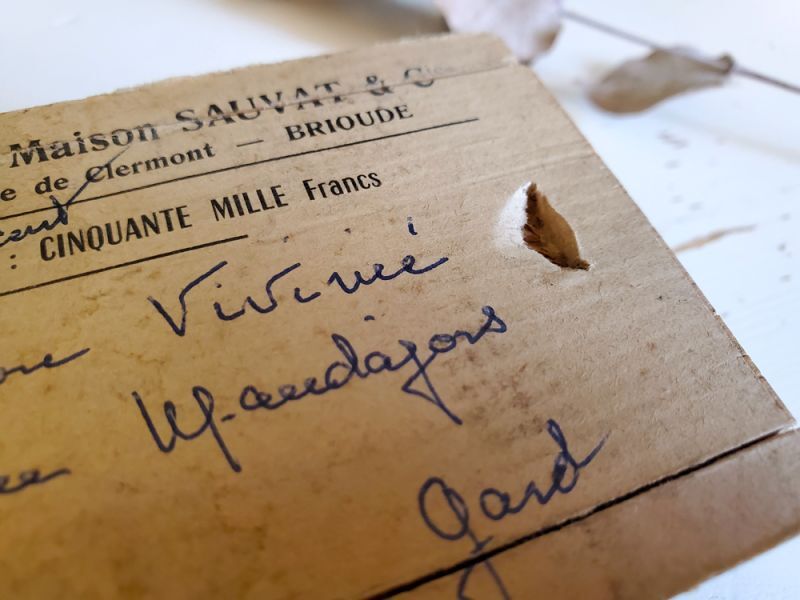 Maison SAUVAT & Cie
e de Clermont — BRIOUDE
: CINQUANTE MILLE Francs
Mandajors
Gard